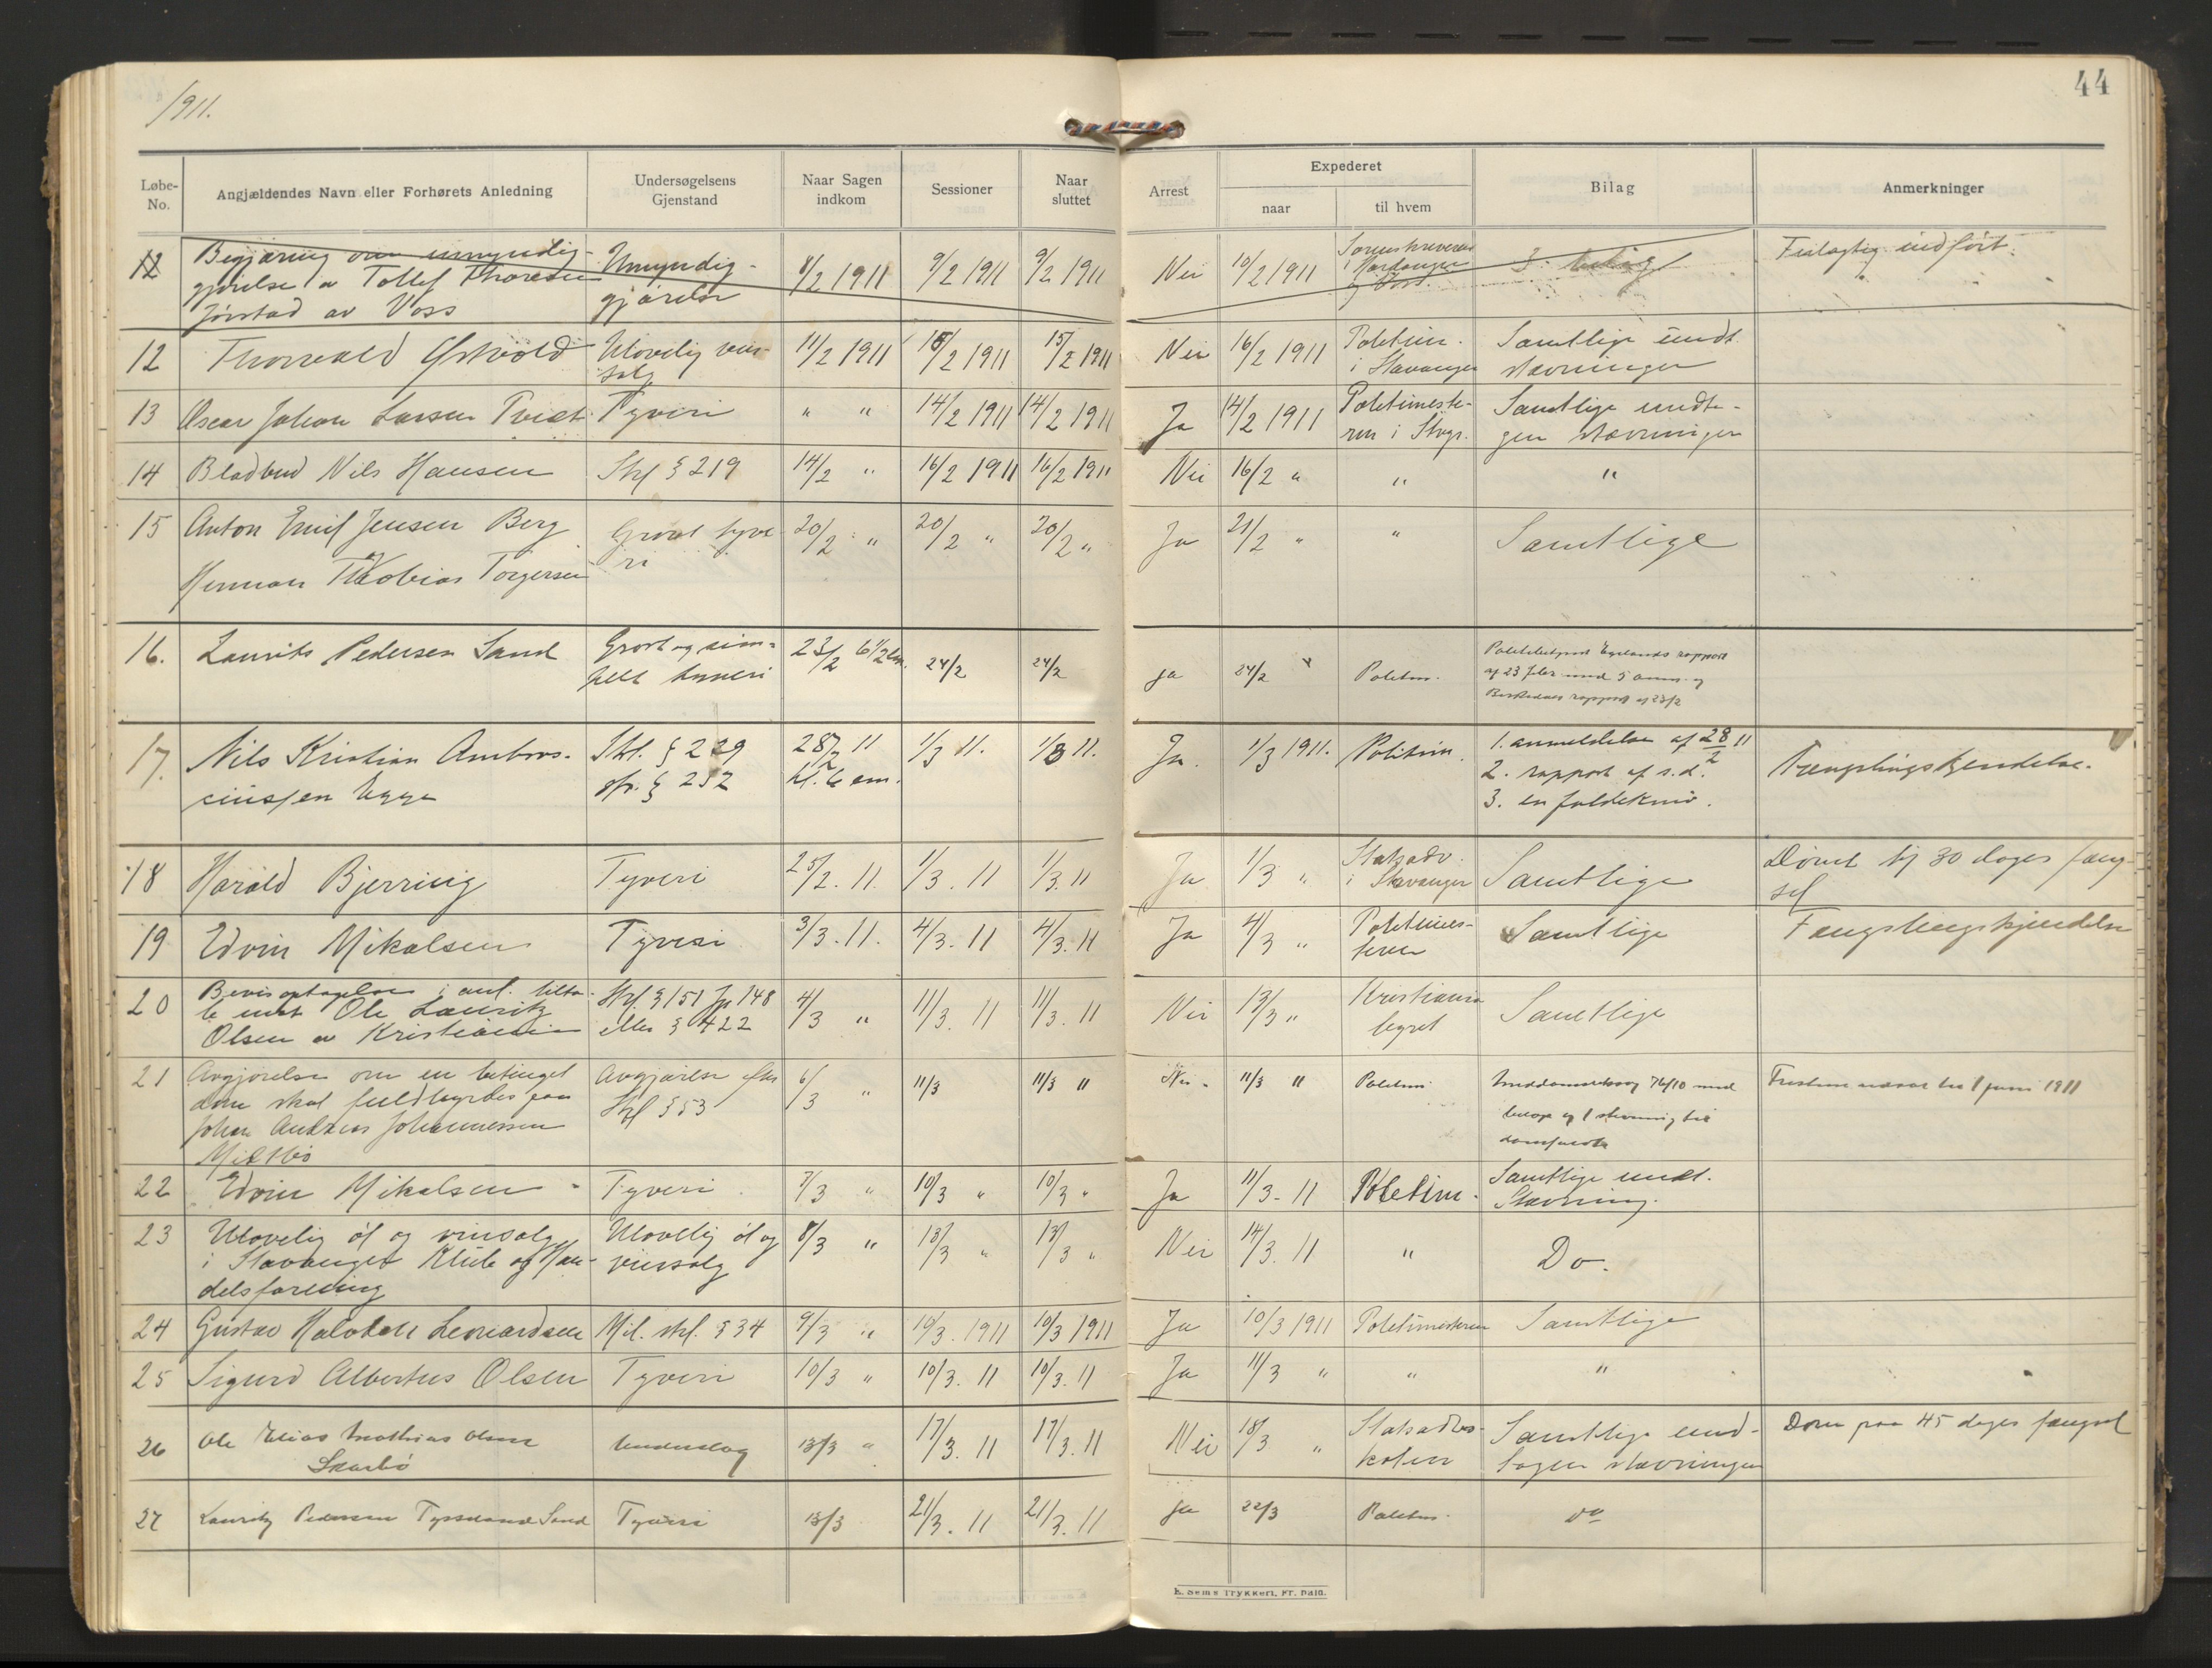 1911.
44
Løbe-No.
Angjældendes Navn eller Forhørets Anledning
Undersøgelsens Gjenstand
Naar Sagen indkom
Sessioner
Naar sluttet
Arrest
Expederet
naar
til hvem
Bilag
Anmerkninger
12 Begjæring om umyndig- Umyndig- 8/2 1911 9/2 1911 9/2 1911 Nei 10/2 1911 Sorenskriveren 3 bilag Feilagtig indført.
gjørelse av Tollef gjørelse i Hardanger
Jørstad av Voss og Voss.
12 Thorvald Ulovlig vin- 11/2 1911 15/2 1911 15/2 1911 Nei 16/2 1911 Politim. Samtlige undt.
salg i Stavanger stævninger
13 Oscar Johan Larsen Tveit Tyveri " " 14/2 1911 14/2 1911 Ja 14/2 1911 Politimeste- Samtlige undta-
ren i Stvgr. gen stævninger
14 Bladbud Nils Hansen Strl § 219 14/2 " 16/2 1911 16/2 1911 Nei 16/2 " " "
15 Anton Emil Jensen Berg Grovt tyve- 20/2 " 20/2 " 20/2 " Ja 21/2 " " Samtlige
og ri
Herman Tobias Torgersen
16. Laurits Pedersen Sand Grovt og sim- 23/2 6 1/2 em. 24/2 24/2 ja 24/2 Politim. Politibetjent rapport
pelt tyveri af 23 febr med 5 anm. og
rapport af 23/2
17. Nils Kristian Ambros- Strl. § 229 28/2 11 1/3 11. 1/3 11. Ja. 1/3 1911. Politim. 1. anmeldelse af 28/2 11 Fængslingskjendelse.
ciussen jfr. § 232 kl. 6 em. 2. rapport af s.d.
3. en foldekniv.
18 Harald Bjerring Tyveri 25/2. 11. 1/3. 11 1/3. 11 Ja 1/3 " Statsadv. Samtlige Dømt til 30 dages fæng-
i Stavanger sel
19 Edvin Mikalsen Tyveri 3/3. 11. 4/3. 11 4/3. 11 Ja 4/3 " Politimes- Samtlige Fængslingskjendelse
teren
20 Bevisoptagelse i anl. tilta- Strl § 151 jfr 148 4/3 " 11/3. 11 11/3. 11 Nei 13/3 " Kristiania Samtlige
le mot Ole Lauritz eller § 422 byret
Olsen av Kristiania
21 Avgjørelse om en betinget Avgjørelse efter 6/3 " 11/3 11/3 " Nei 11/3 " Politim. 76/10 med Fristen utsat til 1 juni 1911
dom skal fuldbyrdes paa Strl § 53 bilage og 1 stevning til
Johan Andreas Johannessen
22 Edvin Mikalsen Tyveri 7/3 " 10/3 " 10/3 " Ja 11/3. 11 Politim. Samtlige undt.
Stævning.
23 Ulovlig øl og vinsalg Ulovlig øl og 8/3 " 13/3 " 13/3 " Nei 14/3. 11 " Do.
i Stavanger Klub og Han- vinsalg
delsforening
24 Gustav Leonardsen Mil. strl. § 34 9/3 " 10/3. 1911 10/3 1911 Ja 10/3 1911 Politimesteren Samtlige
25 Sigurd Albertus Olsen Tyveri 10/3 " 10/3. 11 10/3. 11 Ja 11/3 " " "
26 Ole Elias Mathias Olsen Underslag 13/3 " 17/3. 11 17/3. 11 Nei 18/3 " Statsadvo- Samtlige und- Dom paa 45 dages fængsel
Skarbø katen tagen stævningen
27 Lauritz Pedersen Sand Tyveri 13/3 21/3. 11 21/3. 11 ja 22/3 Politim. do
E. Sem's Trykkeri, Fr.hald.